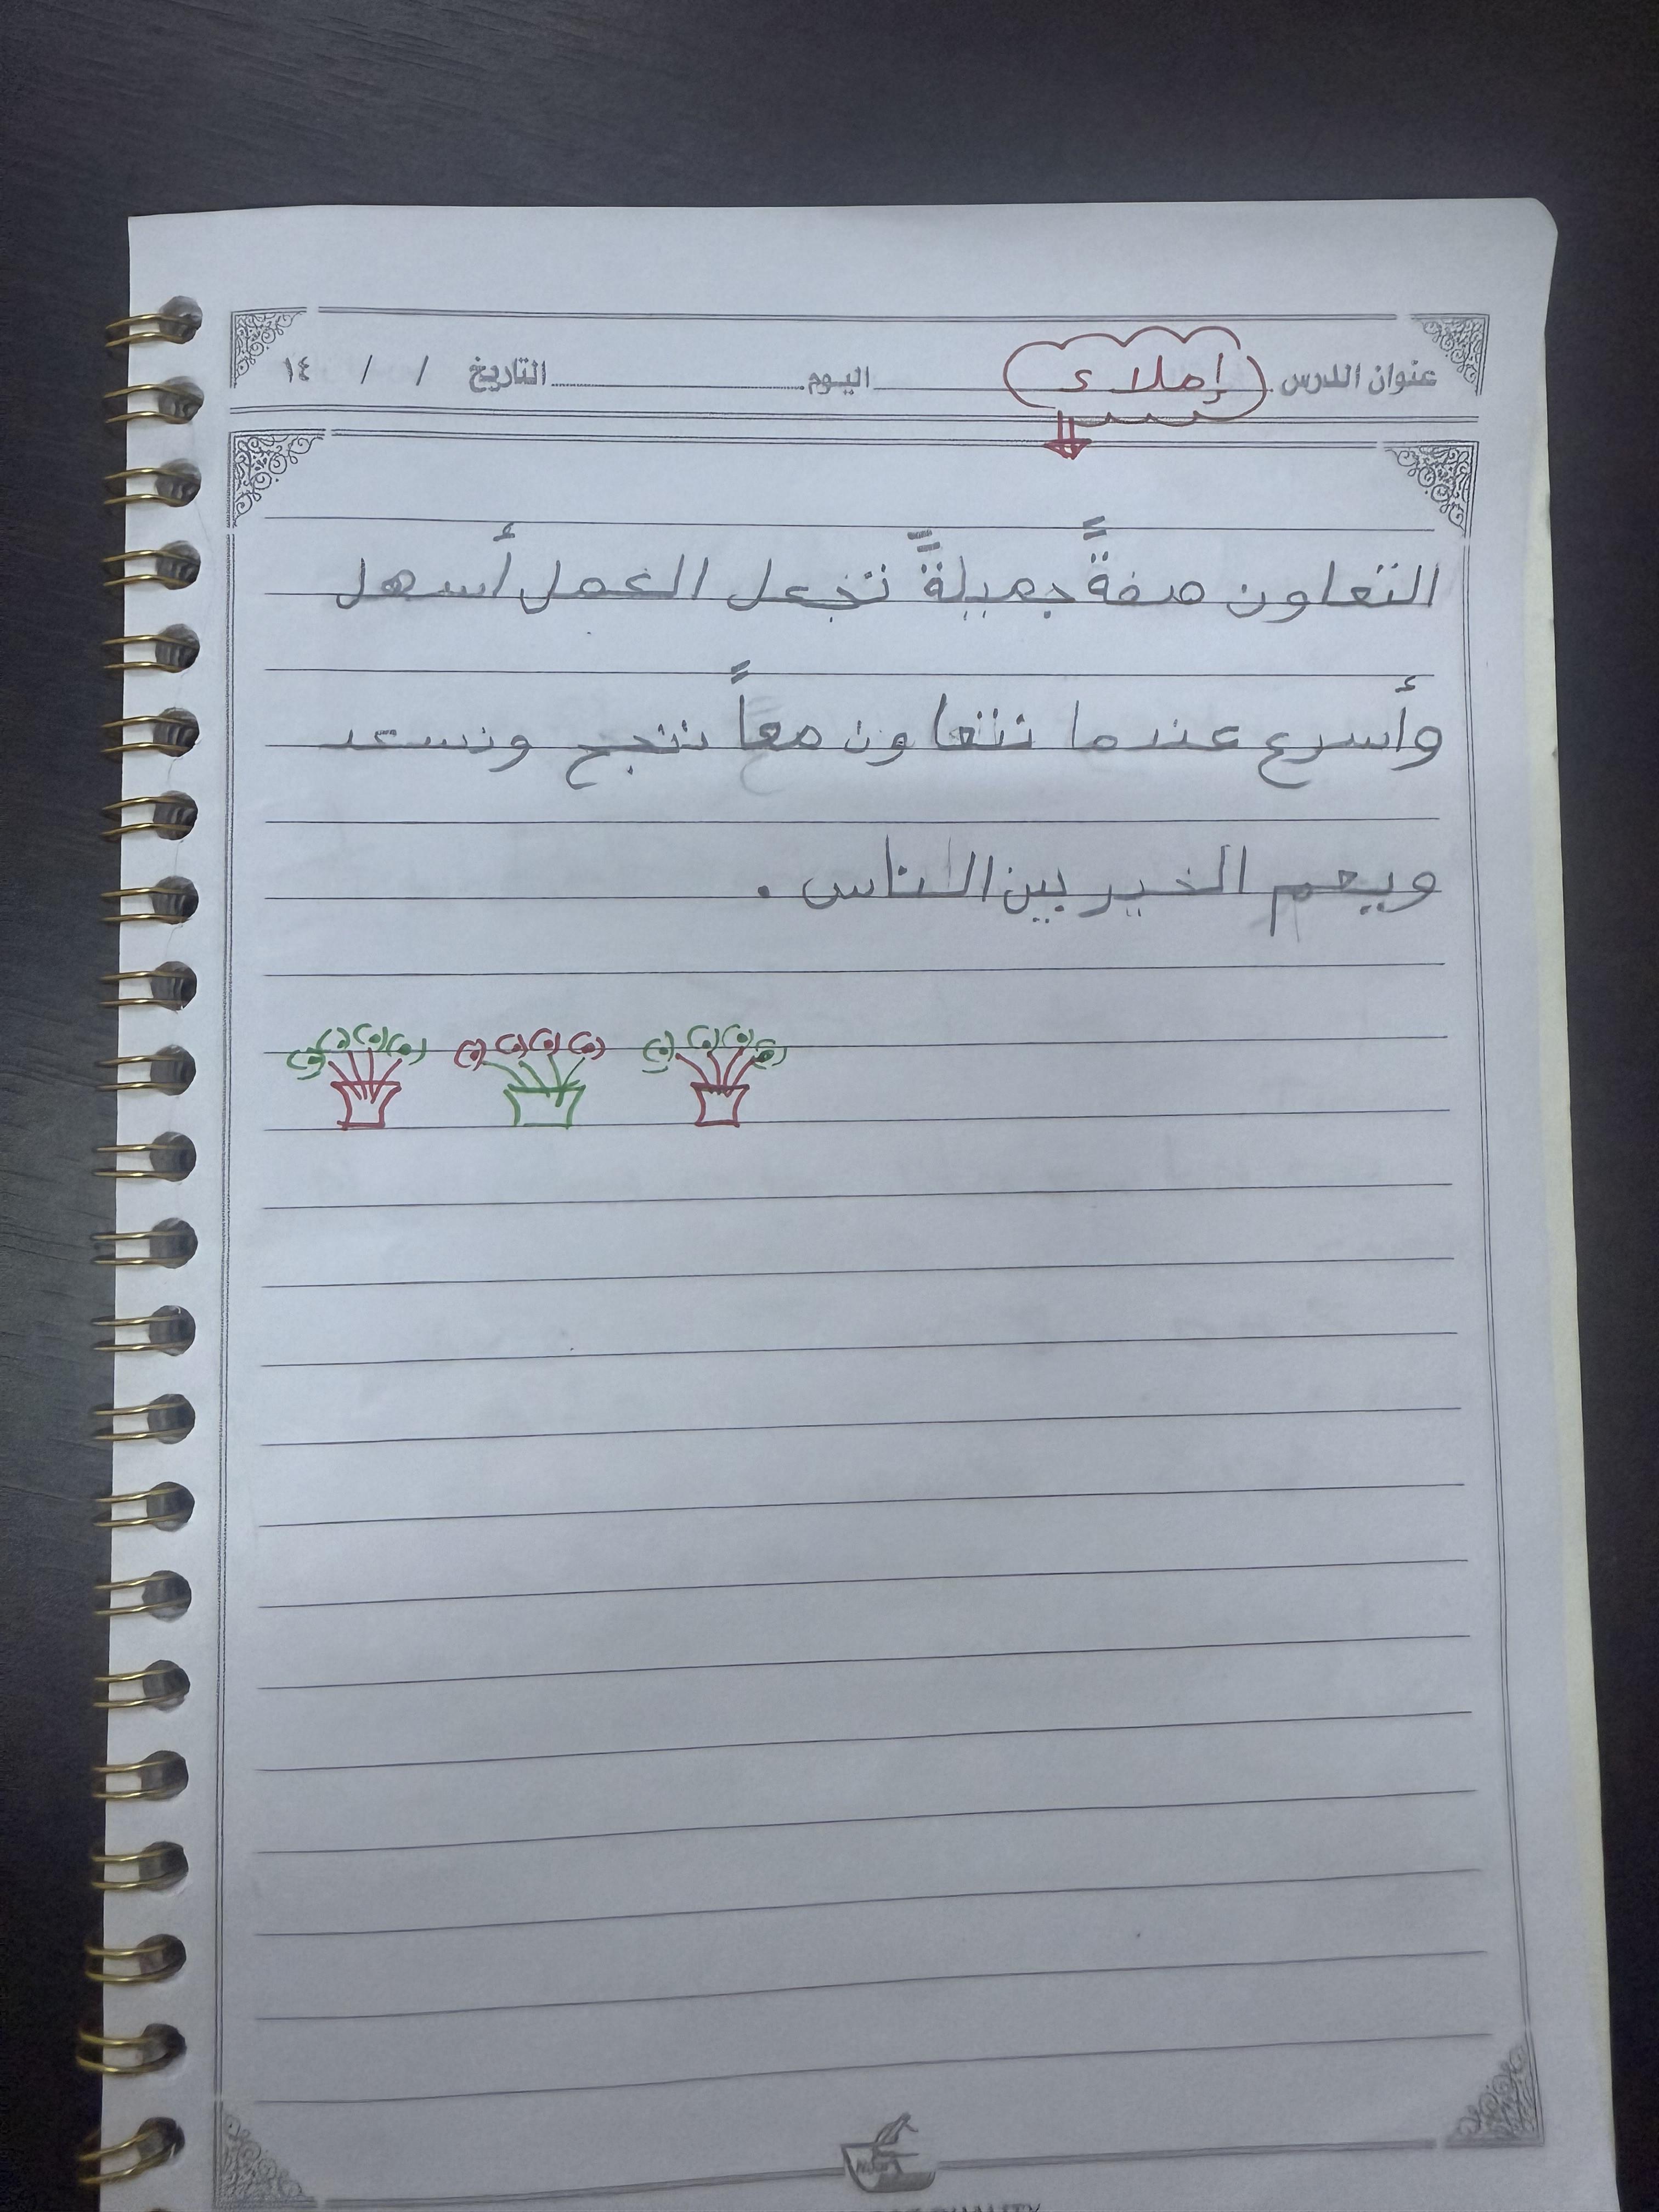 عنوان الدرس إملاء اليوم التاريخ / / ١٤
التعاون صفةً جميلةً تجعل العمل أسهل
وأسرع عندما نتعاون معاً ننجح ونسعد
ويعم الخير بين الناس .